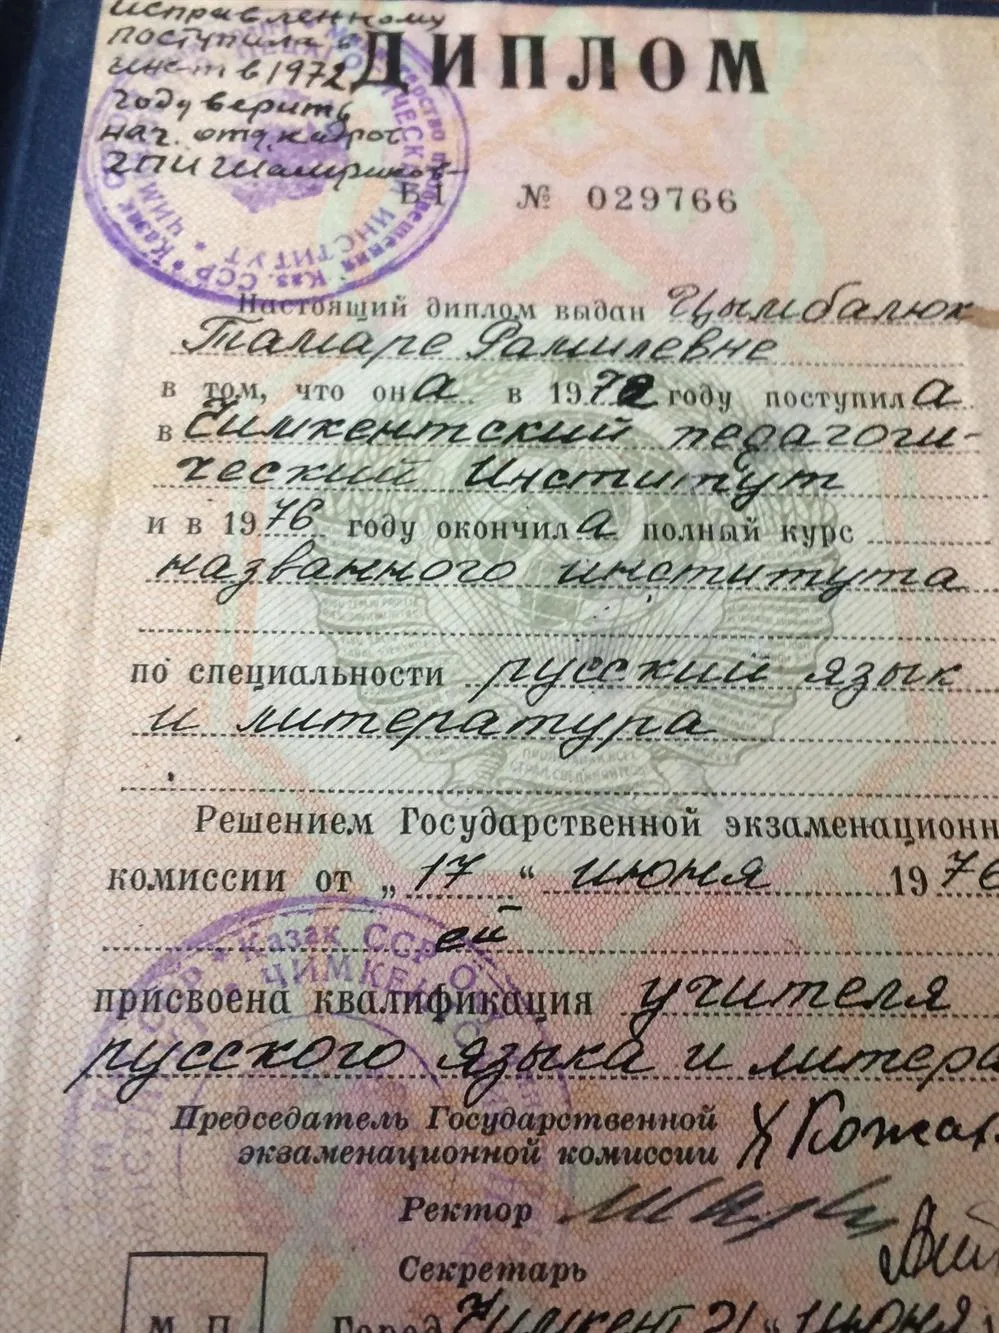 исправленному
поступила в
инст в 1972
году верить
нач. отд. кадров
ЧПИ
ДИПЛОМ
Б I № 029766
Настоящий диплом выдан Цымбалюк
Тамаре Рамилевне
в том, что она в 1972 году поступила
в Чимкентский педагоги-
ческий институт
и в 1976 году окончила полный курс
названного института
по специальности русский язык
и литература
Решением Государственной экзаменационн
комиссии от „17“ июня 1976
ей
присвоена квалификация учителя
русского языка и литера
Председатель Государственной
экзаменационной комиссии
Ректор
Секретарь
М. П. Город Чимкент 21 „июня
Казак ССР
ЧИМКЕН
ИНСТИТУТ
Каз. ССР